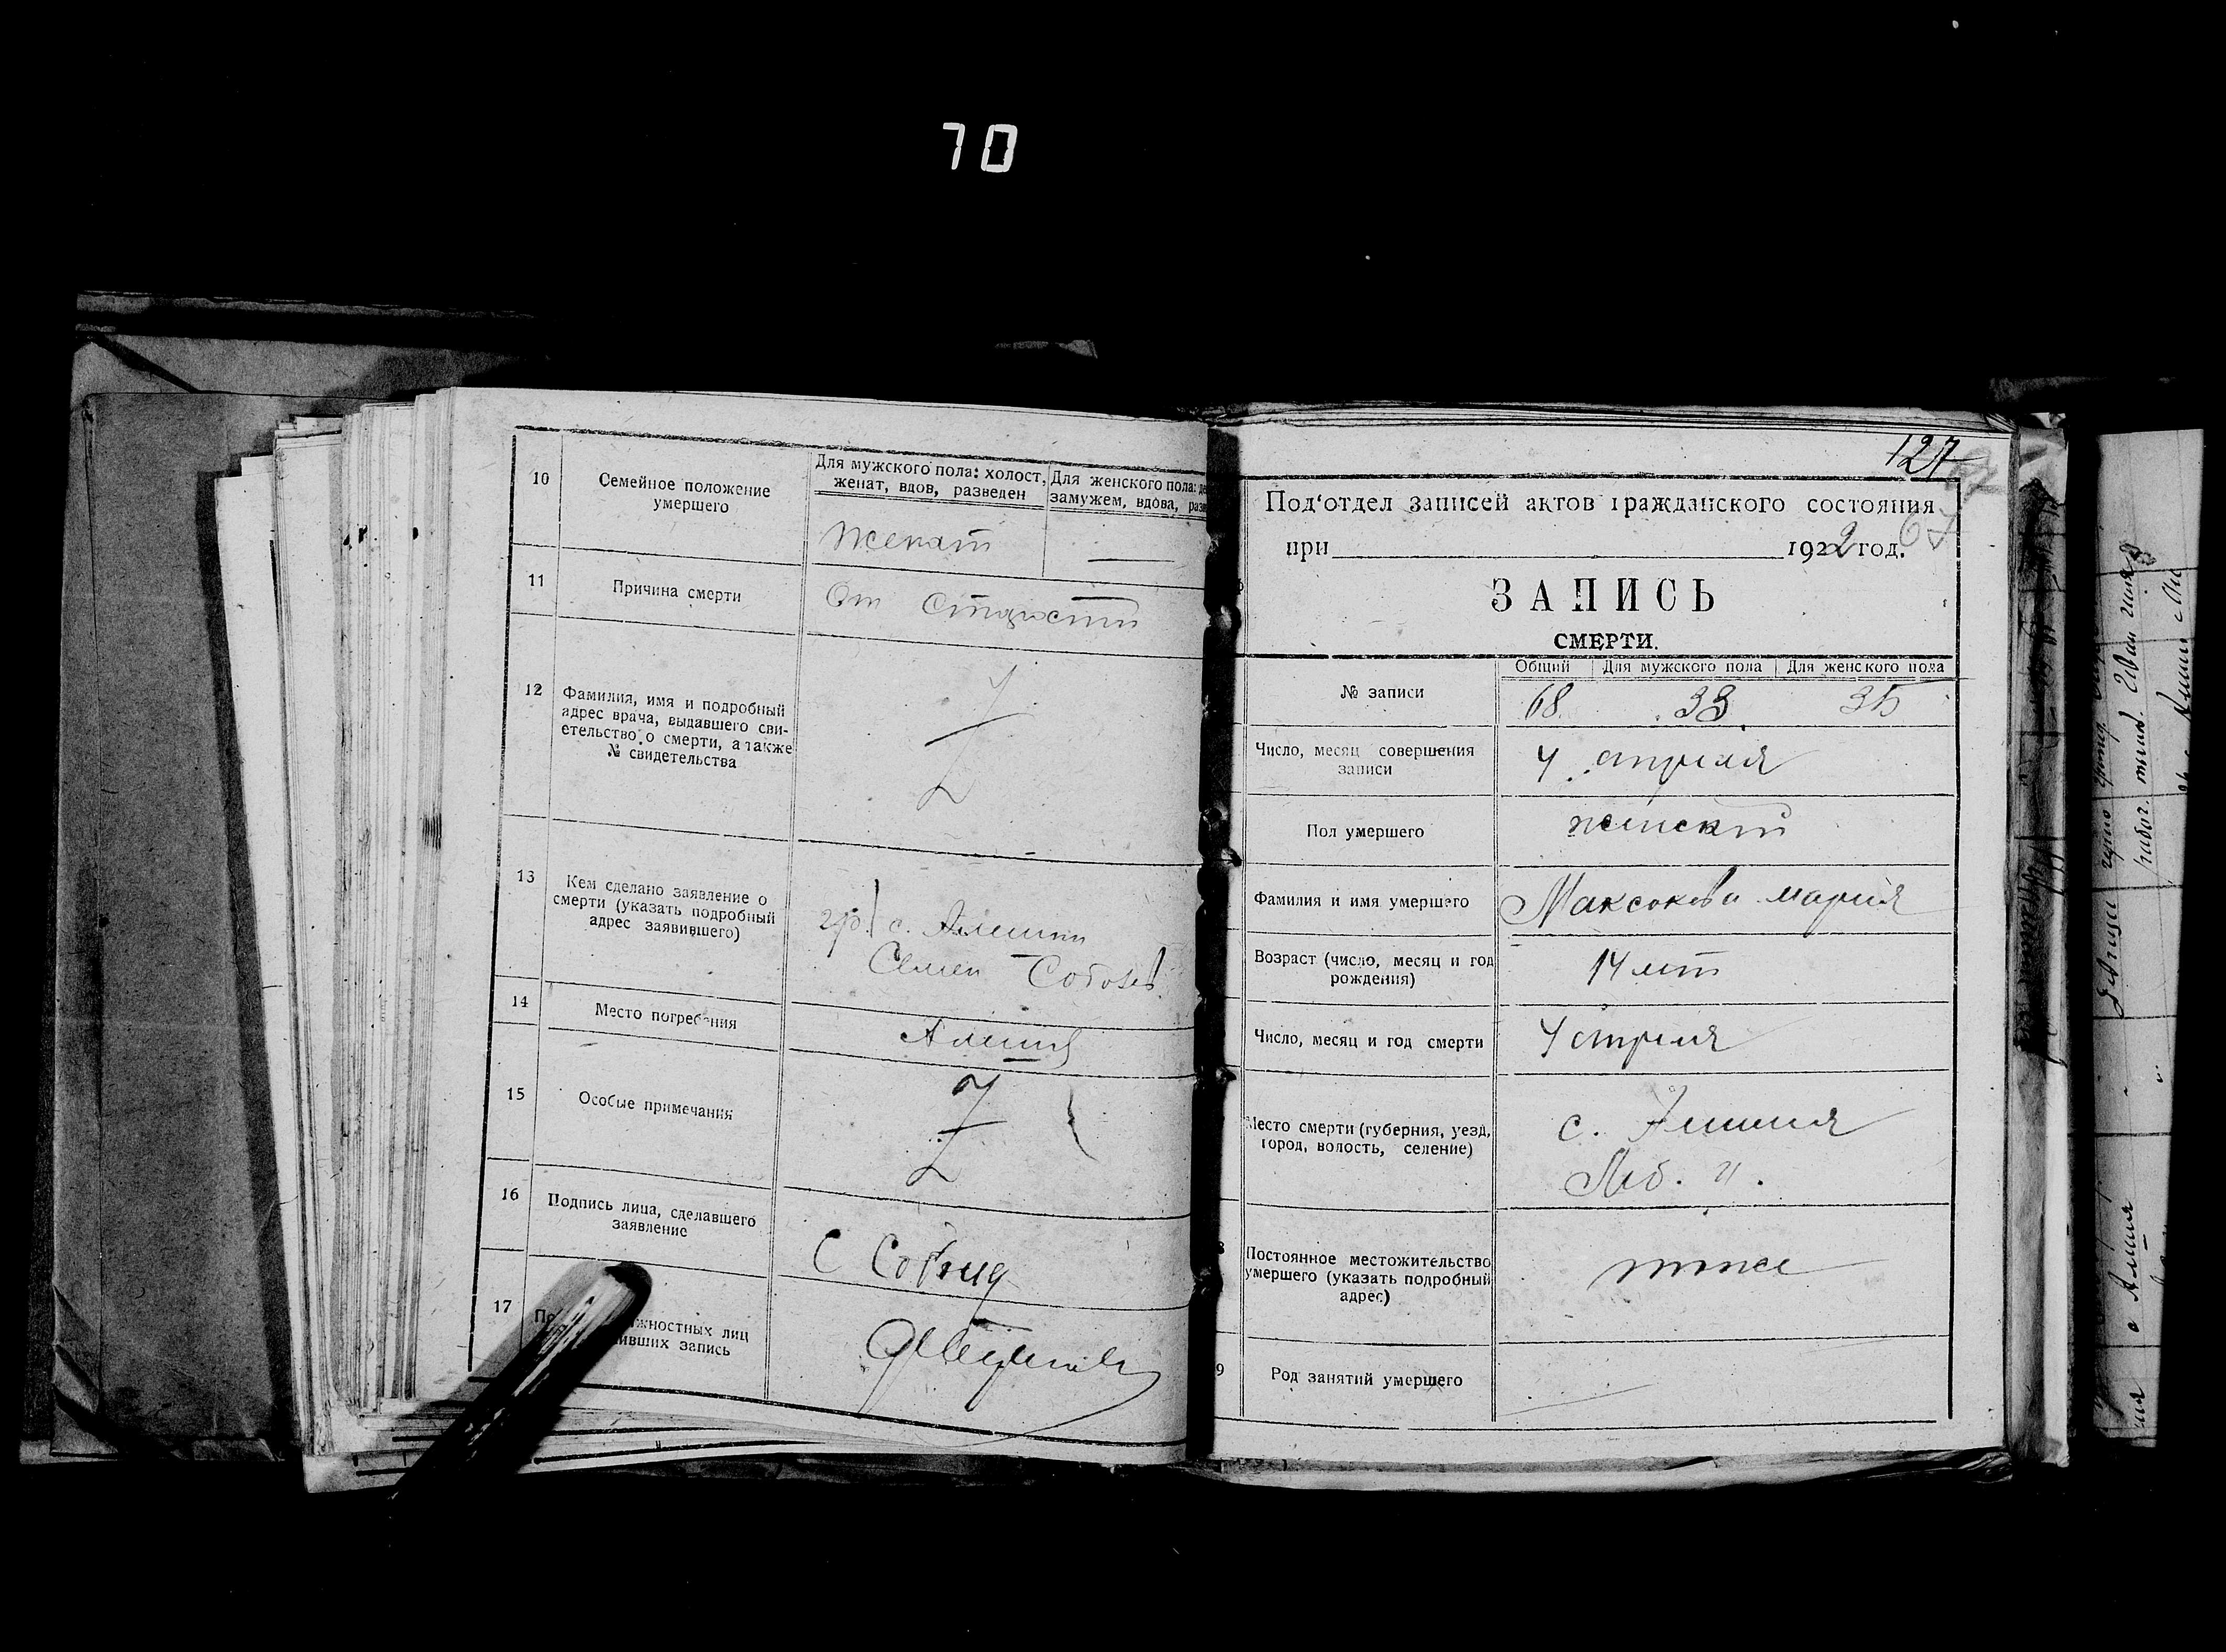 70
10
Семейное положение
умершего
Для мужского пола: холост,
женат, вдов, разведен
Для женского пола:
замужем, вдова,
Женат
11
Причина смерти
От старости
12
Фамилия, имя и подробный
адрес врача, выдавшего сви-
етельство о смерти, а также
№ свидетельства
13
Кем сделано заявление о
смерти (указать подробный
адрес заявившего)
гр. с. Алешни
Семен
14
Место погребения
Алешня
15
Особые примечания
16
Подпись лица, сделавшего
заявление
С
17
жностных лиц
ивших запись
127
67
Под'отдел записей актов гражданского состояния
при 1922 год.
ЗАПИСЬ
СМЕРТИ.
Общий Для мужского пола Для женского пола
№ записи
68 33 35
Число, месяц совершения
записи
4 апреля
Пол умершего
женский
Фамилия и имя умершего
Максокова Мария
Возраст (число, месяц и год
рождения)
14 лет
Число, месяц и год смерти
4 апреля
Место смерти (губерния, уезд,
город, волость, селение)
с. Алешня
Леб. у.
Постоянное местожительство
умершего (указать подробный
адрес)
тоже
9
Род занятий умершего